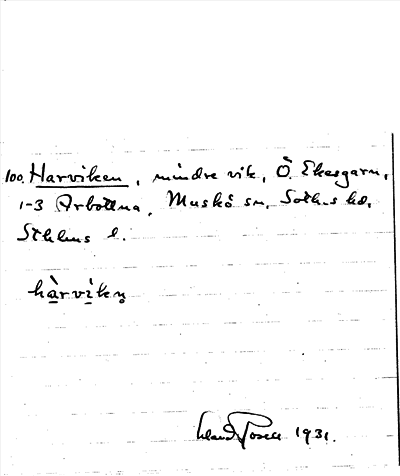 100. Harviken, mindre vik, Ö. Ekesgarn,
1-3 Arbottna, Muskö sn, Soth-s hd,
Sthlms l.
hàrvìkn̥
1931.